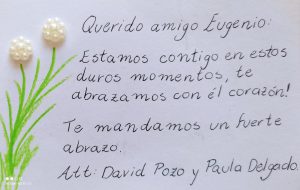 Querido amigo Eugenio:
Estamos contigo en estos
duros momentos, te
abrazamos con él corazón!
Te mandamos un fuerte
abrazo.
Att: David Pozo y Paula Delgado.